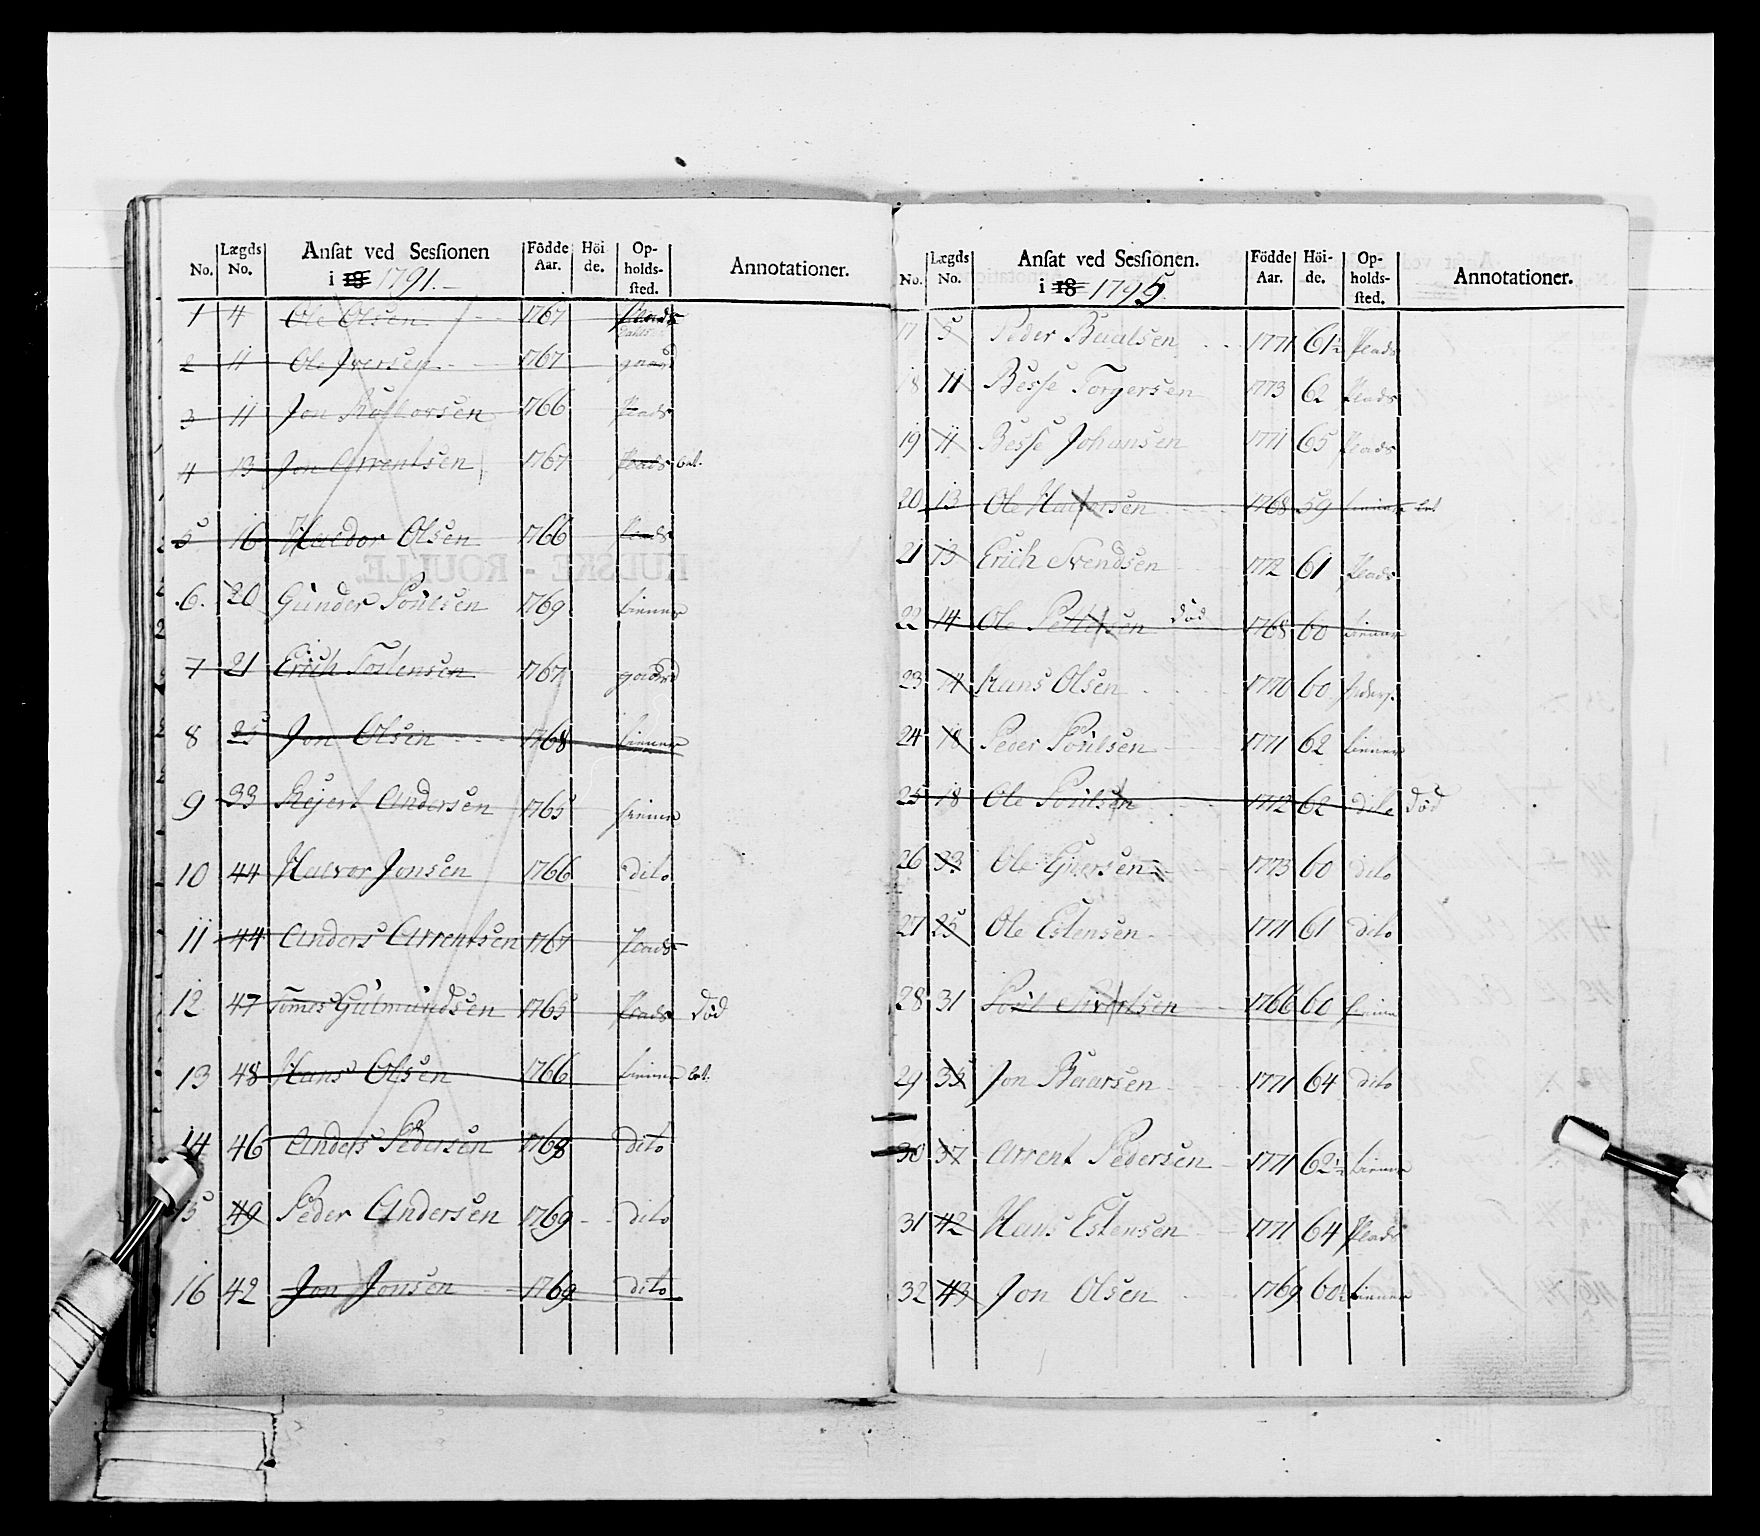 No. Lægds No. Ansat ved Sessionen i 18 1791. Födde Aar. Höi de. Op-holds-sted. Annotationer.
1 4 Ole Olsen 1767 Plads
2 11 Ole Iversen 1767 gaard
3 11 Jon 1766 Plads
4 13 Jon Arrentsen 1767 Plads
5 16 Haldor Olsen 1766 Plads
6. 20 Gunder Poulsen 1769 tienner
7 21 Erich Tostensen 1767
8 25 Jon Olsen 1768 tienner
9 33 Andersen 1765 tienner
10 44 Halvor Jonsen 1766 dito
11 44 Anders Arrentsen 1767 Plads
12 47 Gulmundsen 1765 Plads död
13 48 Hans Olsen 1766 tienner
14 46 Anders Pedersen 1768 dito
15 49 Peder Andersen 1769 dito
16 42 Jon Jonsen 1769 dito
No. Lægds No. Ansat ved Sessionen. i 18 1795 Födde Aar. Höi-de. Op-holds-sted. Annotationer.
17 5 Peder 1771 61½ Plads
18 11 Besse Torgersen 1773 62 Plads
19 11 Besse Johansen 1771 65 Plads
20 13 Ole Halvorsen 1768 59 tienner
21 13 Erich Svendsen 1772 61 Plads
22 14 Ole död 1768 60 tienner
23 14 Hans Olsen 1770 60
24 18 Peder Poulsen 1771 62 tienner
25 18 Ole Poulsen 1772 62 dito död
26 23 Ole 1773 60 dito
27 25 Ole Estensen 1771 61 dito
28 31 1766 60 tienner
29 35 Jon Baarsen 1771 64 dito
30 37 Arrent Pedersen 1771 62½ tienner
31 42 Hans Estensen 1771 64 Plads
32 43 Jon Olsen 1769 60½ tienner